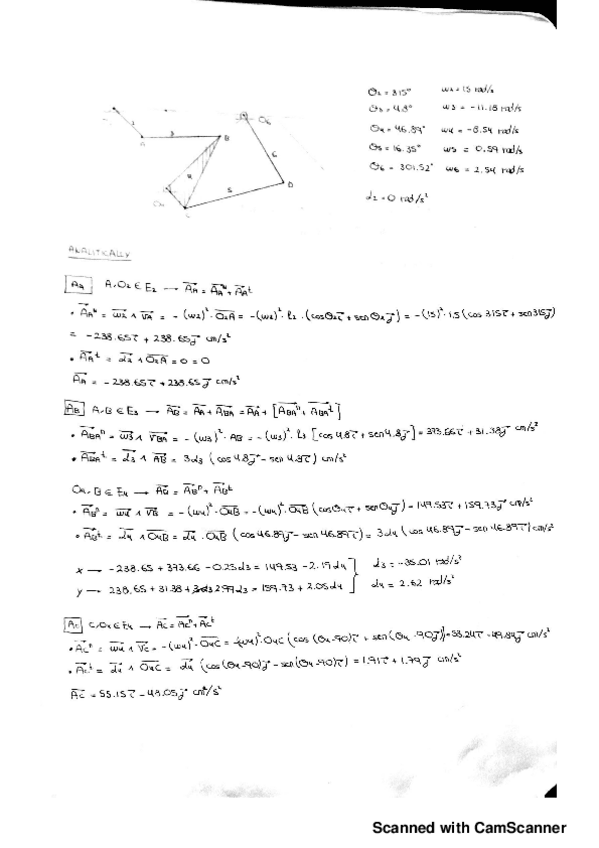 θ2 = 315° ω2 = 15 rad/s
θ3 = 4.8° ω3 = -11.18 rad/s
θ4 = 46.89° ω4 = -8.54 rad/s
θ5 = 16.35° ω5 = 0.59 rad/s
θ6 = 301.52° ω6 = 2.54 rad/s
α2 = 0 rad/s²
2 3 A B 4 O4 C 5 D 6 O6
ANALITICALLY
AA A, O2 ∈ E2 → AA = AAⁿ + AAᵗ
• AAⁿ = ω2 ∧ VA = -(ω2)² · O2A = -(ω2)² · l2 · (cosθ2 i + senθ2 j) = -(15)² · 1.5 (cos 315 i + sen 315 j)
= -238.65 i + 238.65 j cm/s²
• AAᵗ = α2 ∧ O2A = 0 = 0
AA = -238.65 i + 238.65 j cm/s²
AB A, B ∈ E3 → AB = AA + ABA = AA + [ABAⁿ + ABAᵗ]
• ABAⁿ = ω3 ∧ VBA = -(ω3)² · AB = -(ω3)² · l3 [cos 4.8 i + sen 4.8 j] = 373.66 i + 31.38 j cm/s²
• ABAᵗ = α3 ∧ AB = 3α3 (cos 4.8 j - sen 4.8 i) cm/s²
O4, B ∈ E4 → AB = ABⁿ + ABᵗ
• ABⁿ = ω4 ∧ VB = -(ω4)² · O4B = -(ω4)² · O4B (cosθ4 i + senθ4 j) = 149.53 i + 159.73 j cm/s²
• ABᵗ = α4 ∧ O4B = α4 · O4B (cos 46.89 j - sen 46.89 i) = 3α4 (cos 46.89 j - sen 46.89 i) cm/s²
x → -238.65 + 373.66 - 0.25α3 = 149.53 - 2.19α4 α3 = -35.01 rad/s²
y → 238.65 + 31.38 + 2.99α3 = 159.73 + 2.05α4 α4 = 2.62 rad/s²
AC C, O4 ∈ E4 → AC = ACⁿ + ACᵗ
• ACⁿ = ω4 ∧ VC = -(ω4)² · O4C = -(ω4)² · O4C (cos (θ4-90) i + sen (θ4-90) j) = 53.24 i - 49.84 j cm/s²
• ACᵗ = α4 ∧ O4C = α4 (cos (θ4-90) j - sen (θ4-90) i) = 1.91 i + 1.79 j cm/s²
AC = 55.15 i - 48.05 j cm/s²
Scanned with CamScanner